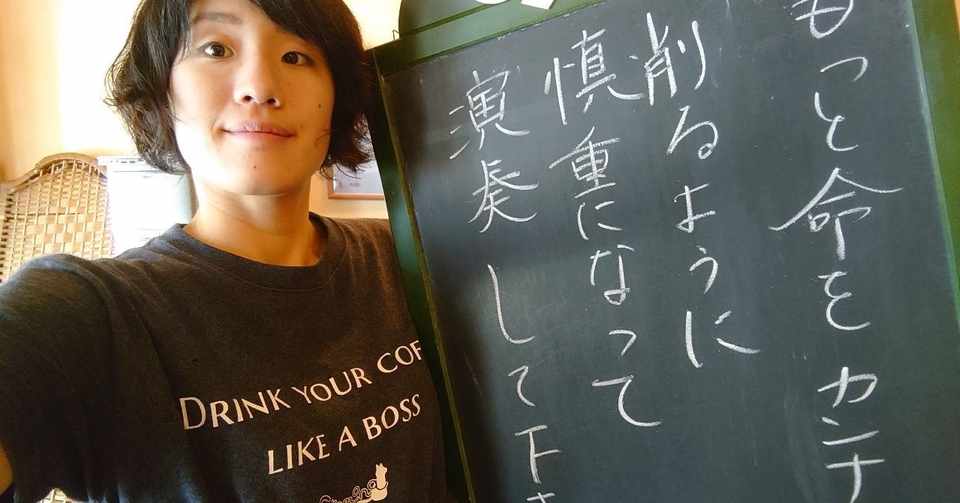 もっと命をカンナ
削るように
慎重になって
演奏して下
DRINK YOUR COF
LIKE A BOSS